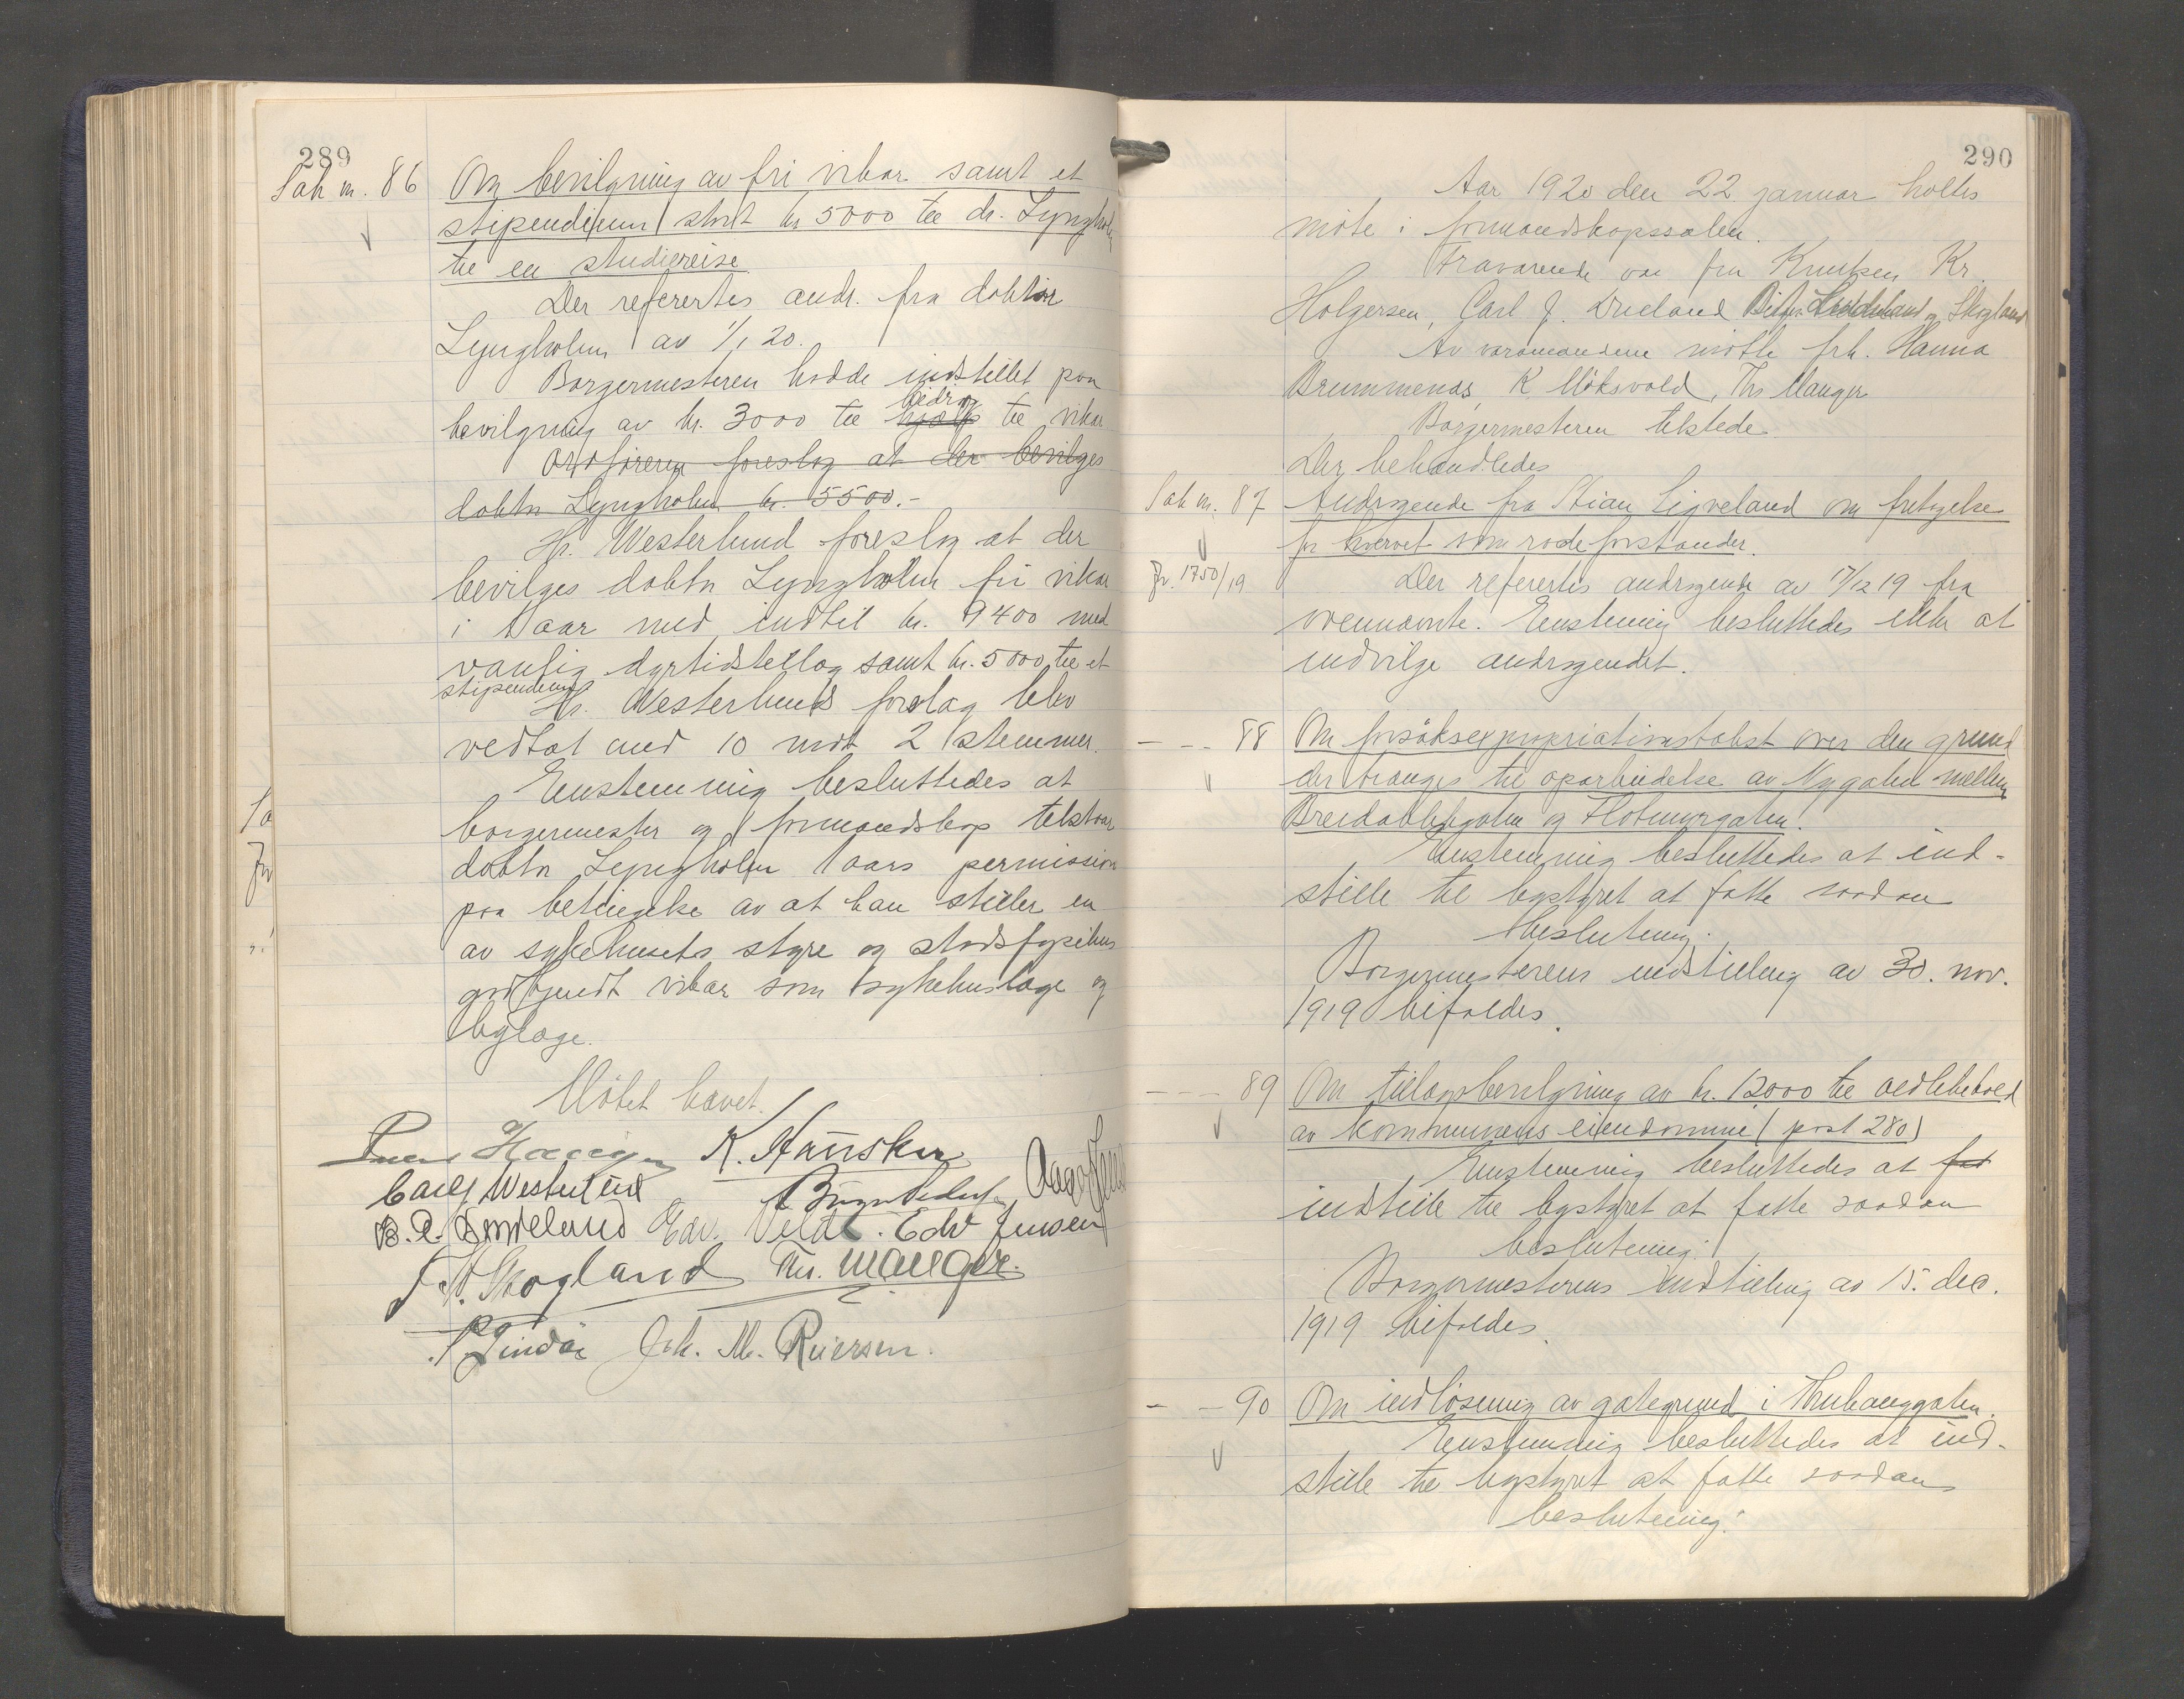 289
Sak nr. 86
Om bevilgning av fri vikar samt et
stipendium stort kr 5000 til dr. Lyngholm
til en studiereise.
Der refertes andr. fra doktor
Lyngholm av 1/1 20.
Borgermesteren hadde indstillet paa
bidrag
bevilgning av kr. 3000 til hjælp til vikar
Ordføreren foreslog at der bevilges
doktor Lyngholm kr. 5500.-
Hr. Westerlund foreslog at der
bevilges doktor Lyngholm fri vikar
i 1 aar med indtil kr. 9400 med
vanlig dyrtidstillæg samt kr. 5000 til et
stipendium
Hr. Westerlunds forslag blev
vedtat med 10 mot 2 stemmer.
Enstemmig besluttedes at
borgermester og formandskap tilstaar
doktor Lyngholm 1 aars permission
paa betingelse av at han stiller en
av sykehusets styre og stadsfysikus
godkjendt vikar som sykehuslæge og
bylæge.
Møtet hævet.
K. Hansker
Carl J Westerlund
B. A. Edv. Veldt. Edv Jensen
Skogland Ths. Mauger.
Lindøe Joh. M. Reiersen.
290
Aar 1920 den 22 januar holtes
møte i formandskapssalen.
Fraværende var fru Knutsen, Kr.
Holgersen, Carl J. og Skogland
Av varamændene møtte frk. Hanna
Brummenæs, K. Moksvold, Ths Mauger
Borgermesteren tilstede
Der behandledes
Sak nr. 87 Andragende fra Stian Ligveland om fritagelse
for hvervet som rodeforstander.
Jr. 1750/19
Der refertes andragende av 17/12 19 fra
ovennævnte. Enstemmig besluttedes ikke at
indvilge andragendet.
- - - 88 Om forsøksexpropriationstakst over den grund
der trænges til oparbeidelse av Nygaten mellem
Breidablikgaten og Flotmyrgaten.
Enstemmig besluttedes at ind-
stille til bystyret at fatte saadan
beslutning:
Borgermesterens indstilling av 30. nov.
1919 bifaldes.
- - - 89 Om tillægsbevilgning av kr. 12000 til vedlikehold
av kommunens eiendomme (post 280)
Enstemmig besluttedes at fat
indstille til bystyret at fatte saadan
beslutning:
Borgermesterens indstilling av 15. dec.
1919 bifaldes.
- - 90 Om indløsning av gategrund i Thuhauggaten.
Enstemmig besluttedes at ind-
stille til bystyret at fatte saadan
beslutning: